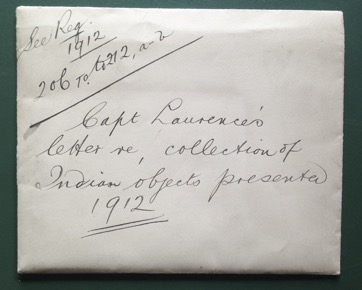 See Reg.
1912
206 To. to 212, a-z
Capt Laurence's
letter re, collection of
Indian objects presented
1912